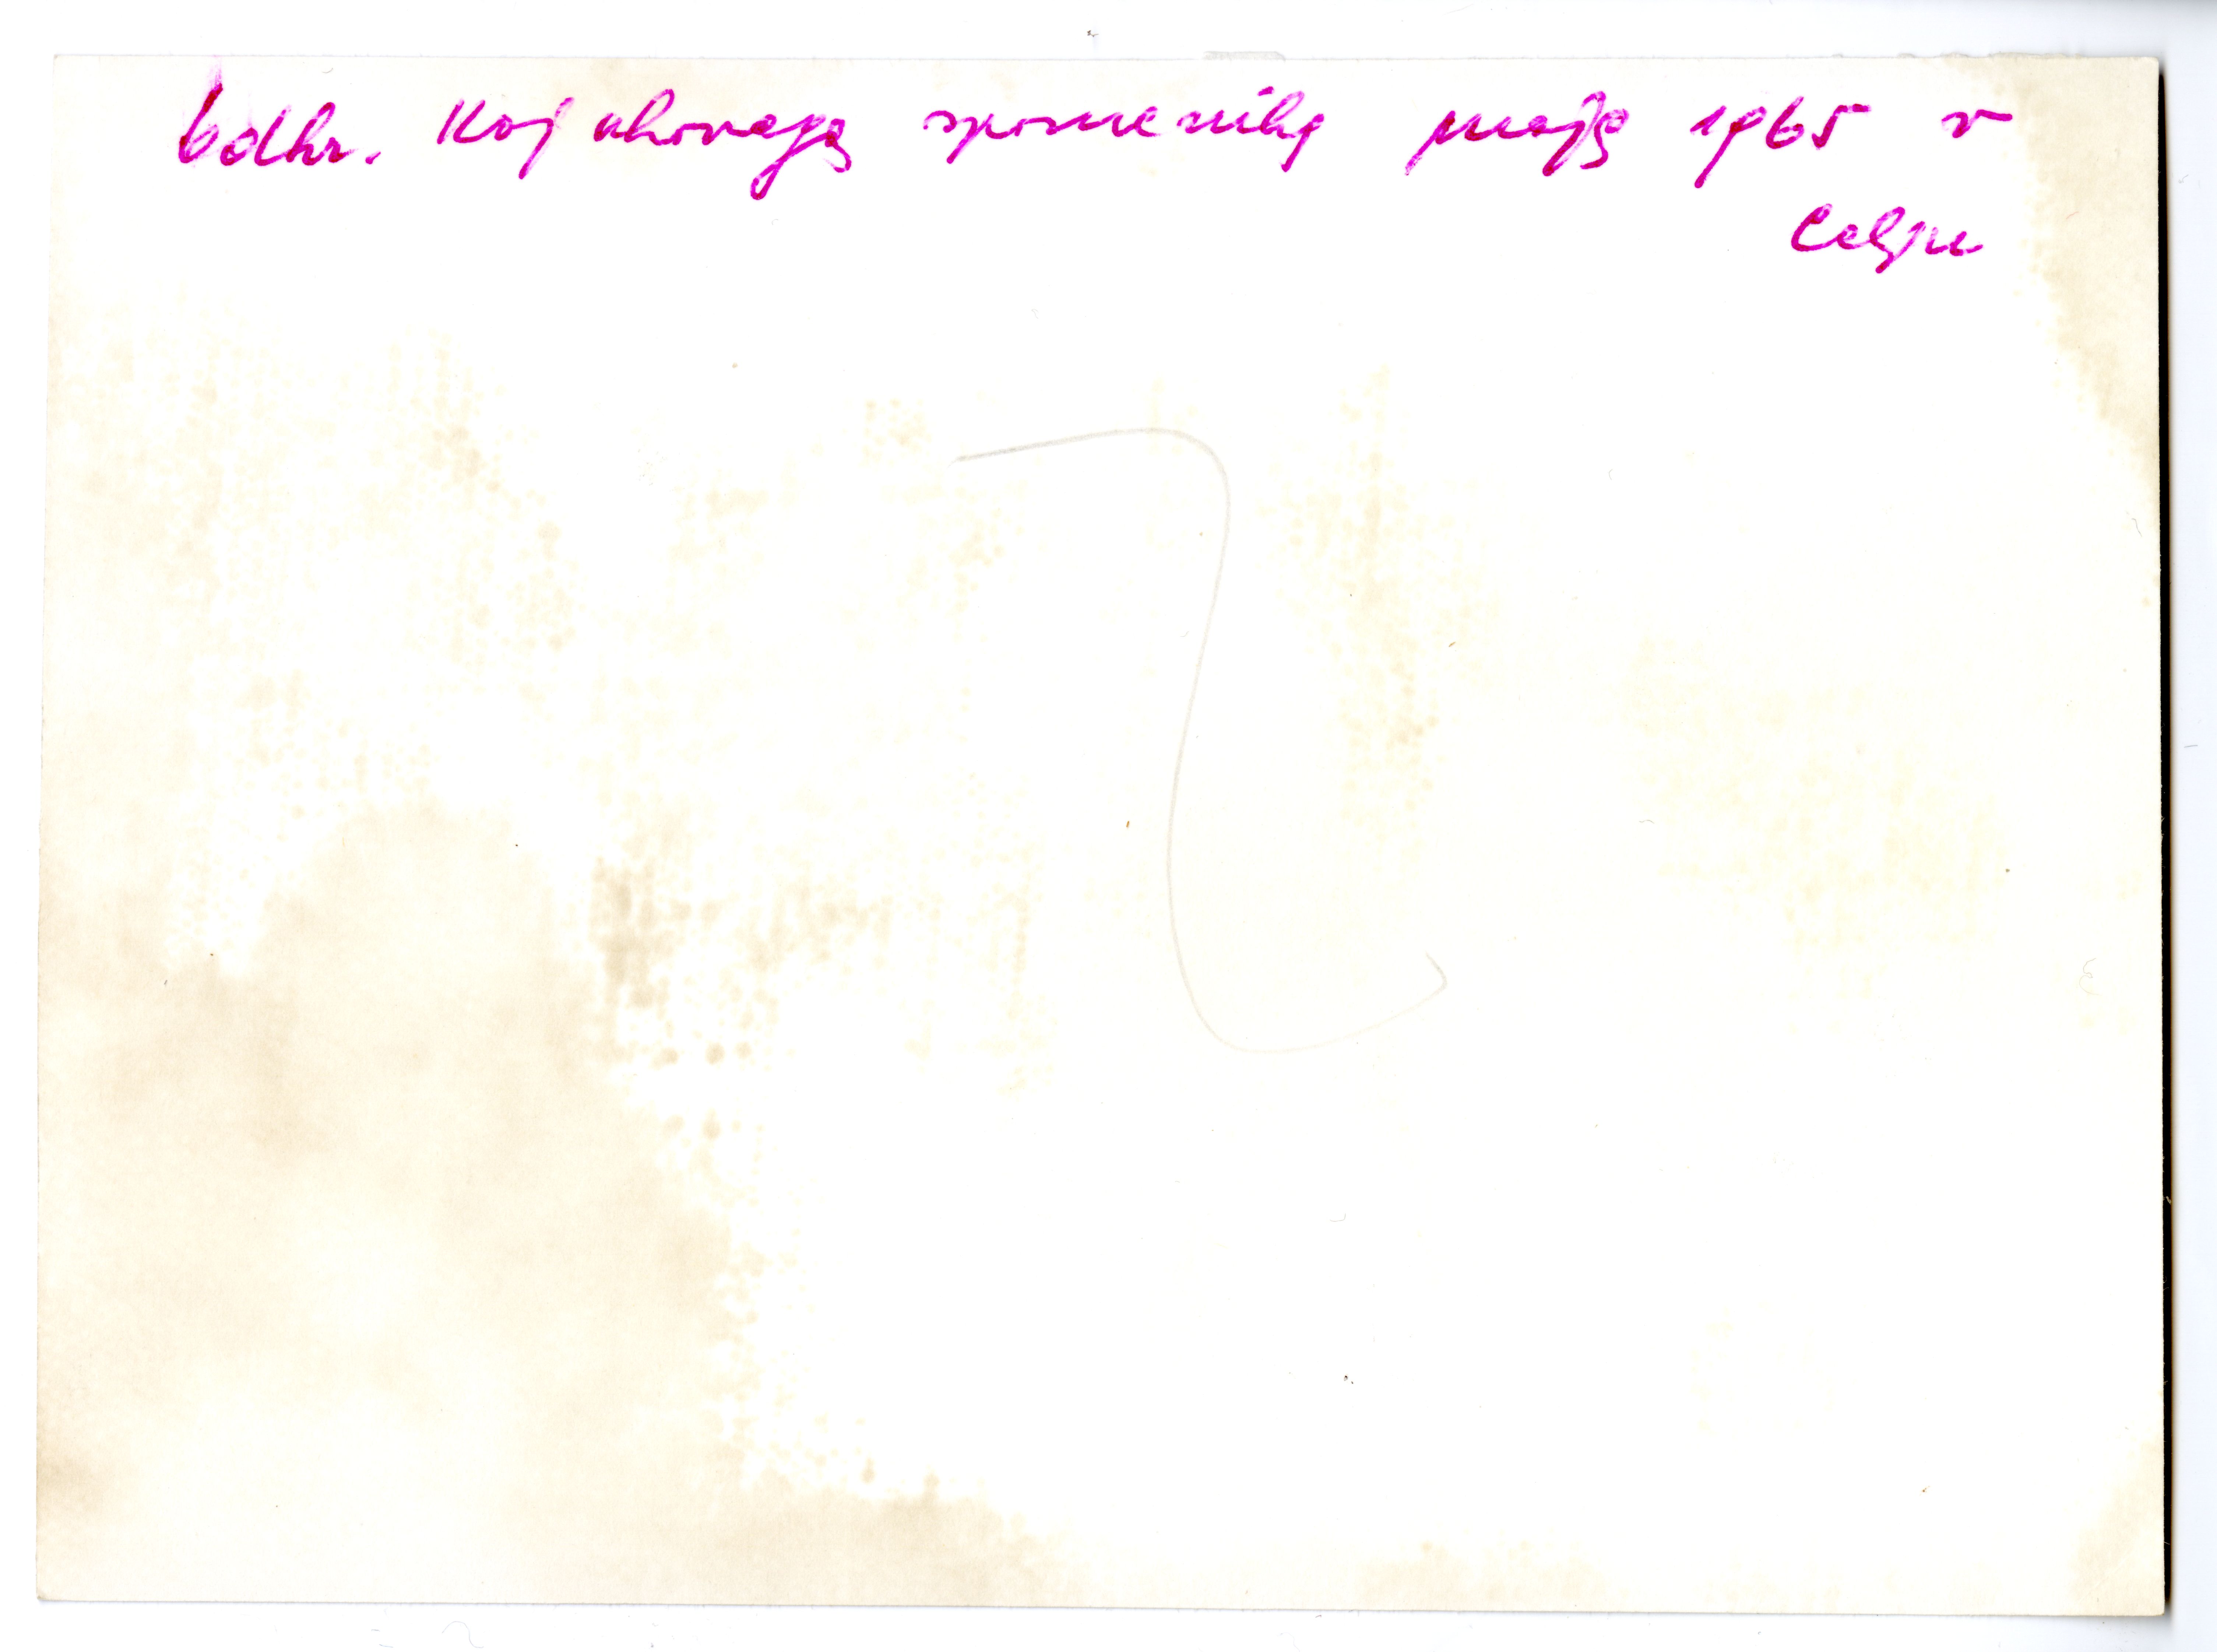 Odkr. Kajuhovega spomenika maja 1965 v
Celju